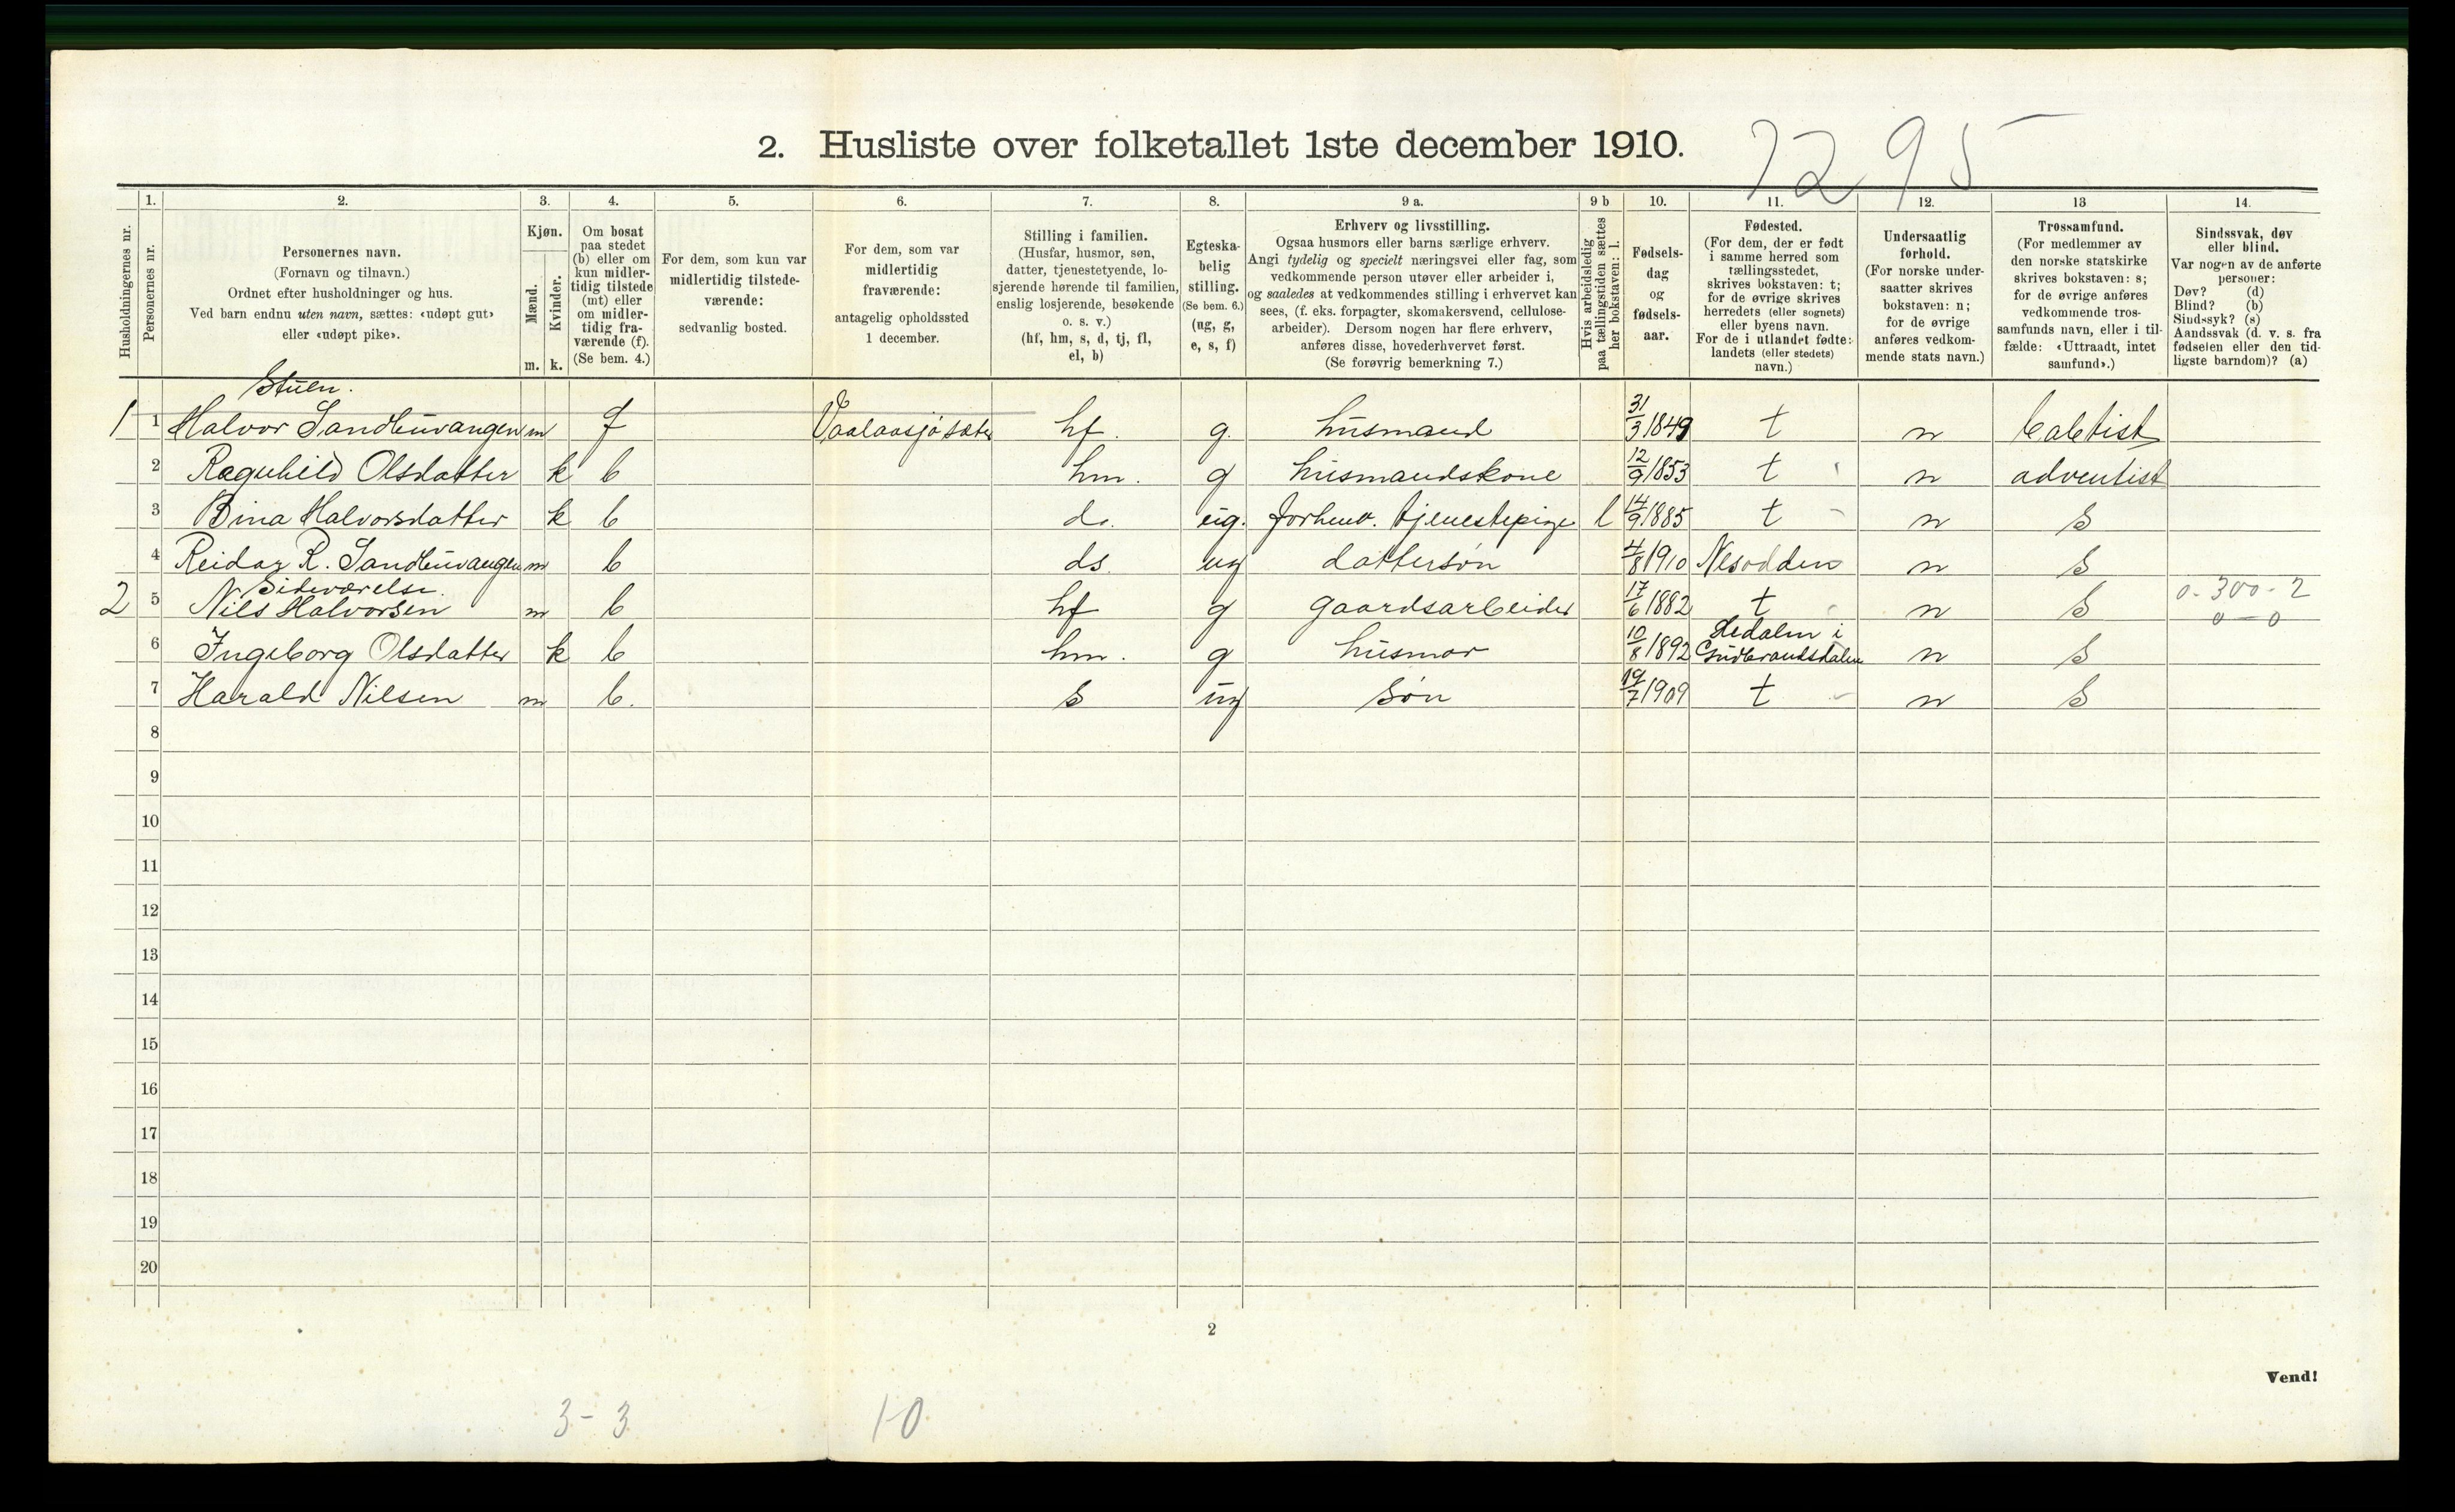 2. Husliste over folketallet 1ste december 1910.
7295
Husholdningernes nr.
1.
Personernes nr.
2.
Personernes navn.
(Fornavn og tilnavn.)
Ordnet efter husholdninger og hus.
Ved barn endnu uten navn, sættes: «udøpt gut»
eller «udøpt pike».
3.
Kjøn.
Mænd.
m.
Kvinder.
k.
4.
Om bosat
paa stedet
(b) eller om
kun midler-
tidig tilstede
(mt) eller
om midler-
tidig fra-
værende (f).
(Se bem. 4.)
5.
For dem, som kun var
midlertidig tilstede-
værende:
sedvanlig bosted.
6.
For dem, som var
midlertidig
fraværende:
antagelig opholdssted
1 december.
7.
Stilling i familien.
(Husfar, husmor, søn,
datter, tjenestetyende, lo-
sjerende hørende til familien,
enslig losjerende, besøkende
o. s. v.)
(hf, hm, s, d, tj, fl,
el, b)
8.
Egteska-
belig
stilling.
(Se bem. 6.)
(ug, g,
e, s, f)
9 a.
Erhverv og livsstilling.
Ogsaa husmors eller barns særlige erhverv.
Angi tydelig og specielt næringsvei eller fag, som
vedkommende person utøver eller arbeider i,
og saaledes at vedkommendes stilling i erhvervet kan
sees, (f. eks. forpagter, skomakersvend, cellulose-
arbeider). Dersom nogen har flere erhverv,
anføres disse, hovederhvervet først.
(Se forøvrig bemerkning 7.)
9 b
Hvis arbeidsledig
paa tællingstiden sættes
her bokstaven: l.
10.
Fødsels-
dag
og
fødsels-
aar.
11.
Fødested.
(For dem, der er født
i samme herred som
tællingsstedet,
skrives bokstaven: t;
for de øvrige skrives
herredets (eller sognets)
eller byens navn.
For de i utlandet fødte:
landets (eller stedets)
navn.)
12.
Undersaatlig
forhold.
(For norske under-
saatter skrives
bokstaven: n;
for de øvrige
anføres vedkom-
mende stats navn.)
13
Trossamfund.
(For medlemmer av
den norske statskirke
skrives bokstaven: s;
for de øvrige anføres
vedkommende tros-
samfunds navn, eller i til-
fælde: «Uttraadt, intet
samfund».)
14.
Sindssvak, døv
eller blind.
Var nogen av de anførte
personer:
Døv? (d)
Blind? (b)
Sindssyk? (s)
Aandssvak (d. v. s. fra
fødselen eller den tid-
ligste barndom)? (a)
Stuen.
1 1 Halvor Sandbuvangen m f Vaalaasjø sæter hf. g. husmand 31/3 1849 t n babtist
2 Ragnhild Olsdatter k b hm. g husmandskone 12/9 1853 t n adventist
3 Bina Halvorsdatter k b d. ug. forhenv. tjenestepige l 14/9 1885 t n s
4 Reidar R. Sandbuvangen m b ds. ug dattersøn 4/8 1910 Nesodden n s
Sideværelse.
2 5 Nils Halvorsen m b hf g gaardsarbeider 17/6 1882 t n s 0-300-2
0-0
6 Ingeborg Olsdatter k b hm. g husmor 10/8 1892 Hedalen i Gudbrandsdalen n s
7 Harald Nilsen m b. s ug søn 19/7 1909 t n s
8
9
10
11
12
13
14
15
16
17
18
19
20
2
Vend!
3-3 10